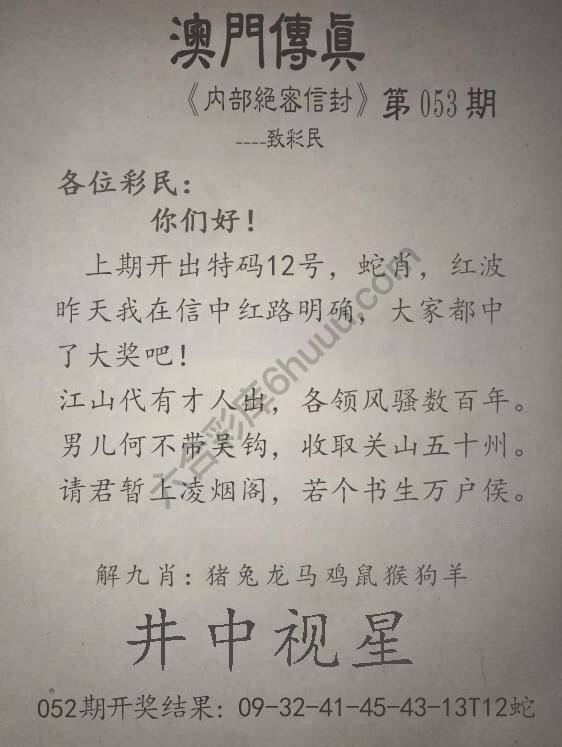 澳門傳眞
《内部絕密信封》第053期
----致彩民
各位彩民：
你们好！
上期开出特码12号，蛇肖，红波
昨天我在信中红路明确，大家都中
了大奖吧！
江山代有才人出，各领风骚数百年。
男儿何不带吴钩，收取关山五十州。
请君暂上凌烟阁，若个书生万户侯。
六合彩库6huuu.com
解九肖：猪兔龙马鸡鼠猴狗羊
井中视星
052期开奖结果：09-32-41-45-43-13T12蛇